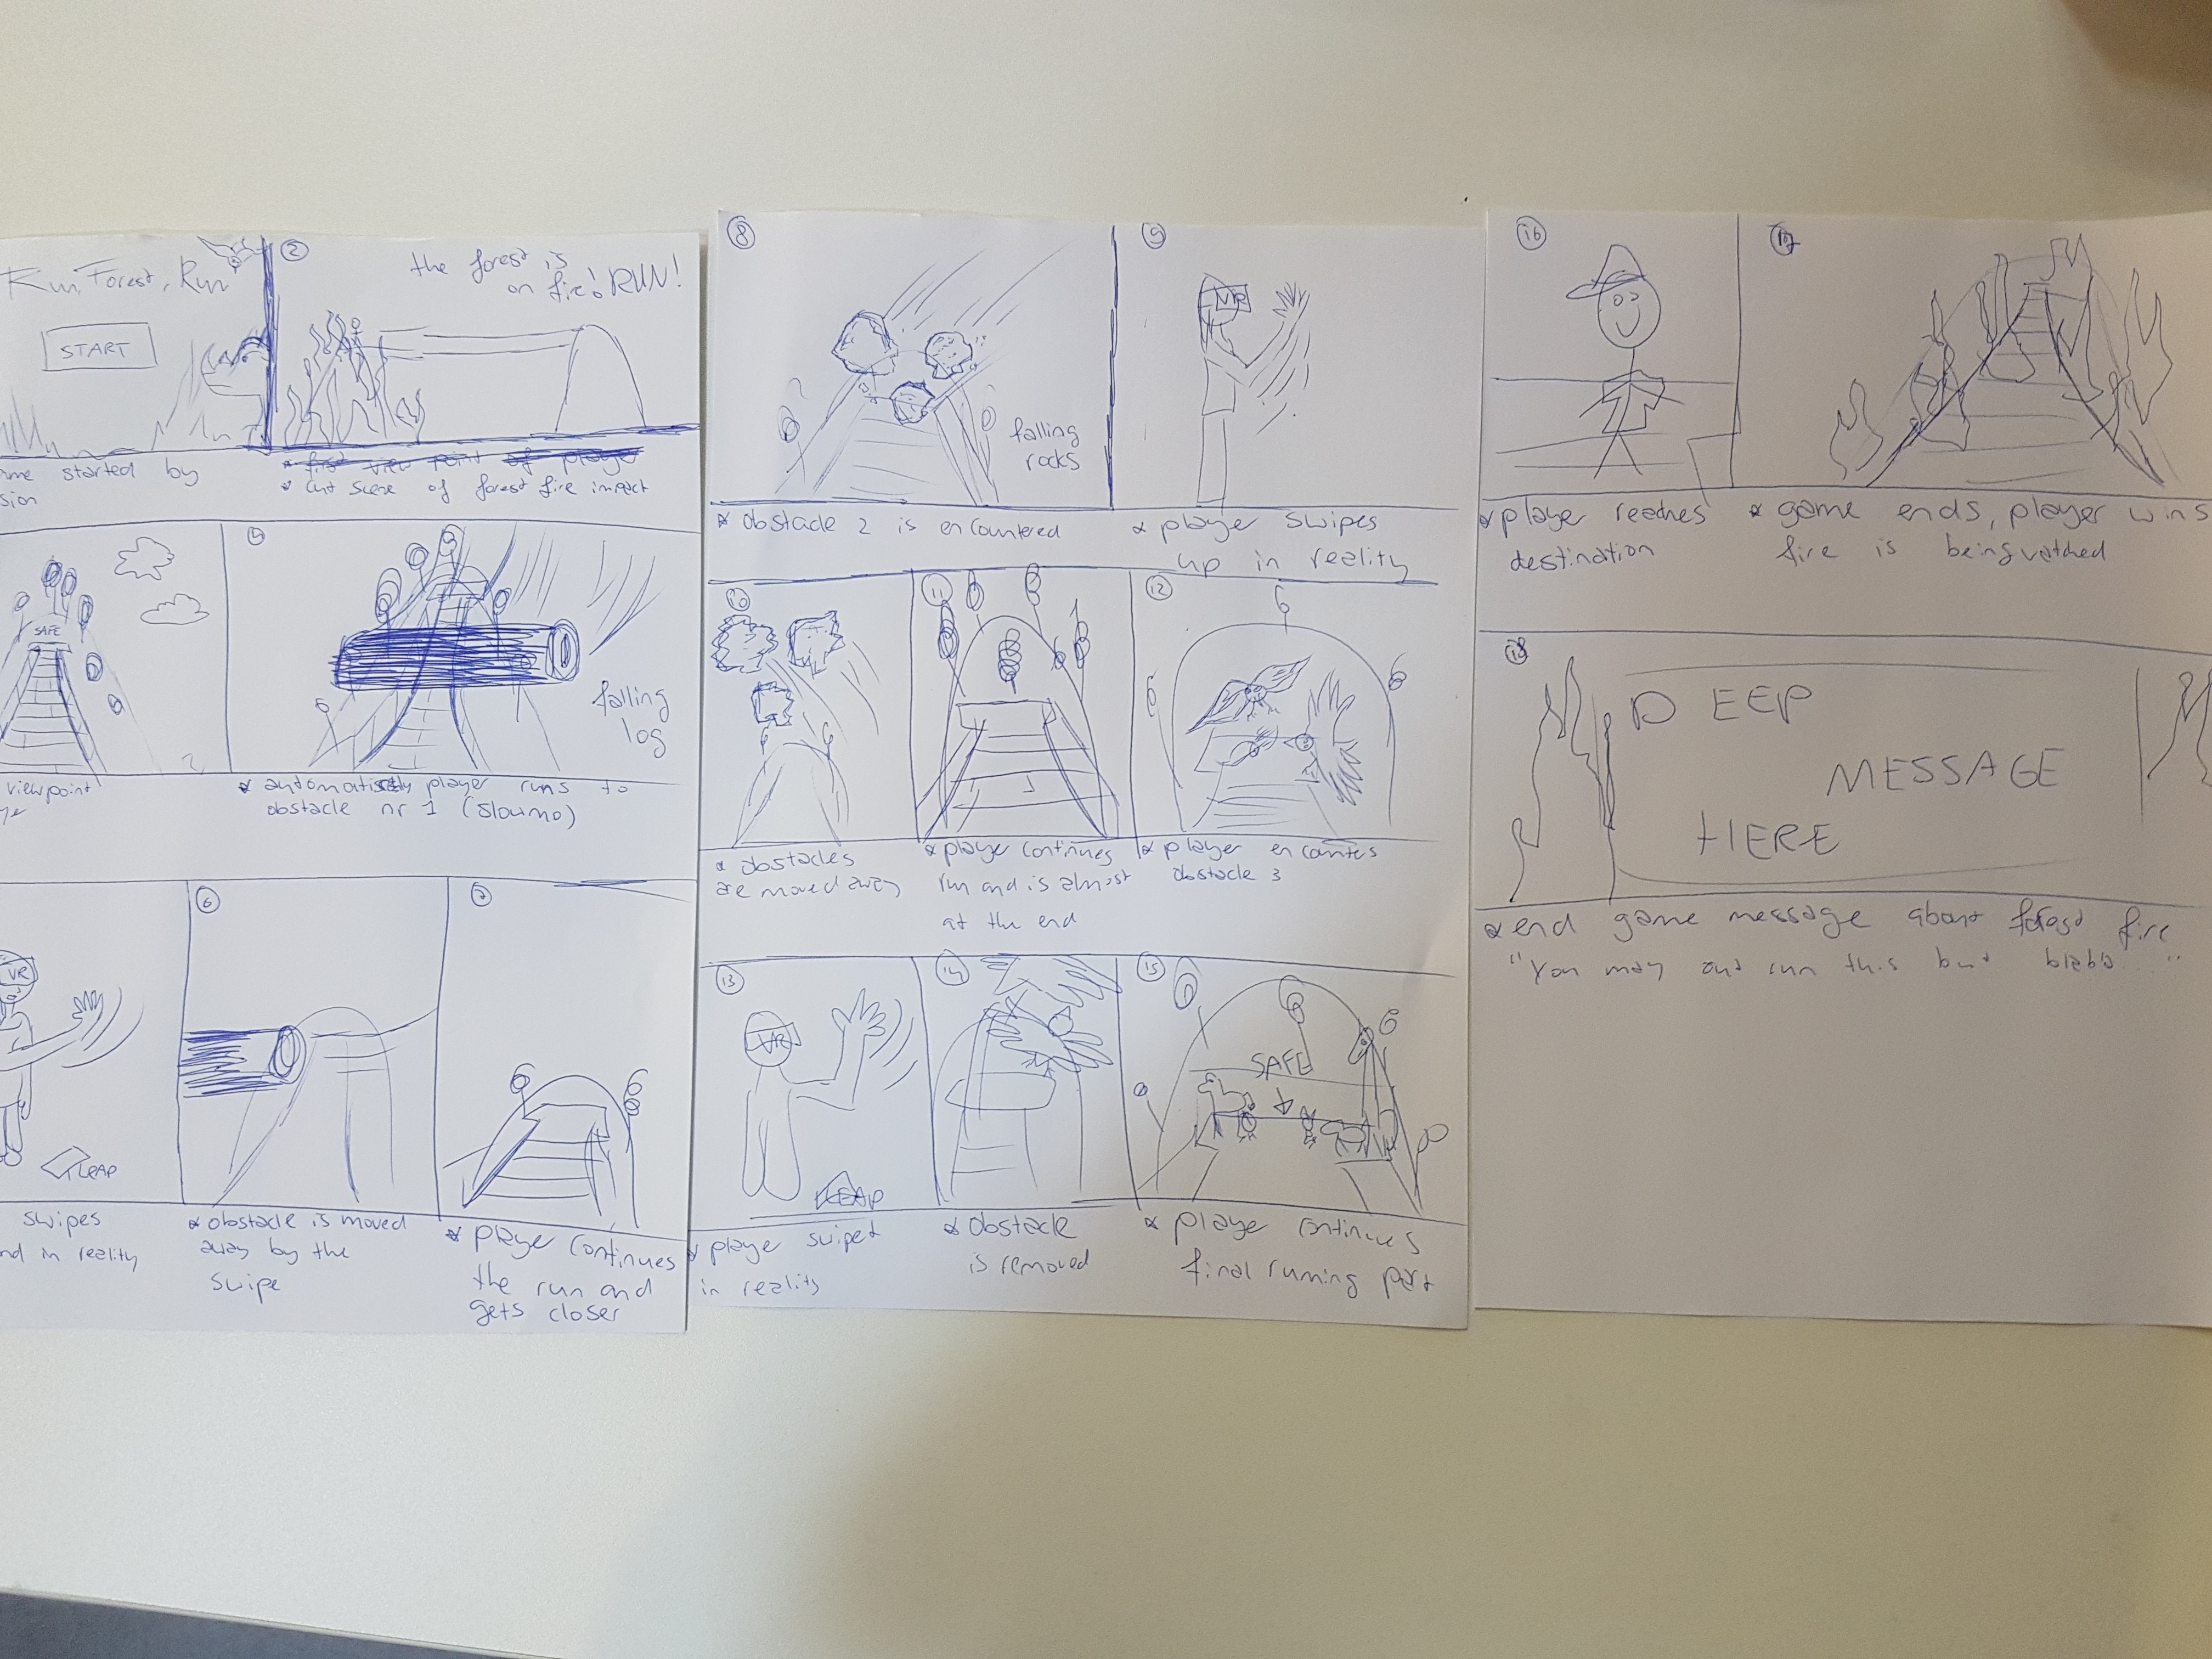 Run, Forest, Run
START
me started by
sion
2
the forest is
on fire! RUN!
* first view point of player
* cut scene of forest fire impact
SAFE
viewpoint
4
falling
log
* automatically player runs to
obstacle nr 1 (slowmo)
VR
LEAP
swipes
nd in reality
6
* obstacle is moved
away by the
swipe
7
* player continues
the run and
gets closer
8
falling
rocks
* obstacle 2 is encountered
9
VR
* player swipes
up in reality
10
* obstacles
are moved away
11
* player continues
run and is almost
at the end
12
* player encounters
obstacle 3
13
VR
LEAP
* player swiped
in reality
14
* obstacle
is removed
15
SAFE
* player continues
final running part
16
* player reaches
destination
17
* game ends, player wins
fire is being watched
18
DEEP
MESSAGE
HERE
* end game message about forest fire
"You may out run this but blabla"